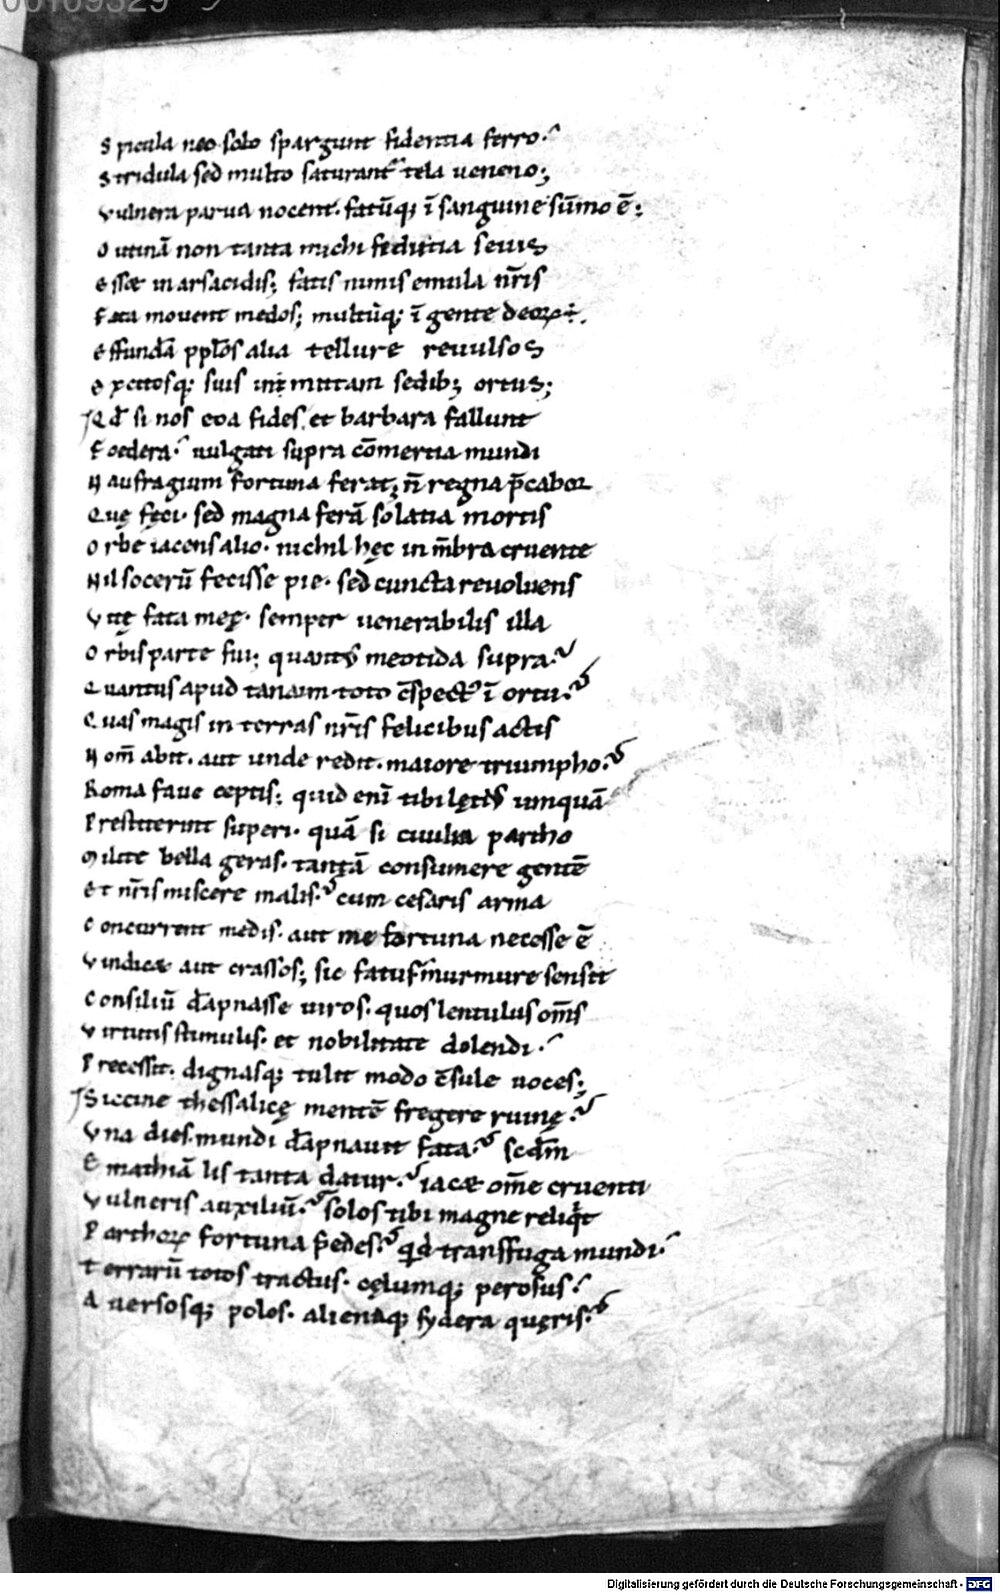 00109329
Spicula nec solo spargunt fidentia ferro.
Stridula sed multo saturant tela ueneno;
Vulnera parua nocent. fatūq; ī sanguine sūmo ē;
O utinā non tanta michi fiducia seuis
Essæ in arsacidis; fatis nimis emula nr̄is
Fata mouent medos; multūq; ī gente deorꝝ ÷.
Effundā pplōs alia tellure reuulsos
Excitosq; suis inmittam sedib; ortus;
Qd̄ si nos eoa fides. et barbara fallunt
Foedera. uulgati supra cōmertia mundi
Naufragium fortuna ferat; n̄ regna p̄cabor
Quę feci. sed magna ferā solatia mortis
Orbe iacens alio. nichil hęc in m̄bra cruente
Nil socerū fecisse pie. sed cuncta reuoluens
Vitę fata meę. semper uenerabilis illa
Orbis parte fui; quantus meotida supra.
Quantus apud tanaim toto c̄spectus ī ortu.
Quas magis in terras nr̄is felicibus actis
Nom̄ abit. aut unde redit. maiore triumpho.
Roma faue ceptis; quid enī tibi lętius umquā
Prestiterint superi. quā si ciuilia partho
Milite bella geras. tantā consumere gentē
Et nr̄is miscere malis. cum cesaris arma
Concurrent medis. aut me fortuna necesse ē
Vindicæ aut crassos; sic fatus murmure sensit
Consiliū dāpnasse uiros. quos lentulus om̄s
Virtutis stimulis. et nobilitate dolendi.
Precessit. dignasq; tulit modo c̄sule uoces;
Siccine thessalicę mentē fregere ruinę.
Vna dies mundi dāpnauit fata. scdm̄
Emathiā lis tanta datur. iacæ om̄e cruenti
Vulneris auxiliū. solos tibi magne reliqit
Parthorꝝ fortuna pedes. qid transffuga mundi.
Terrarū totos tractus. cęlumq; perosus.
Auersosq; polos. alienaq; sydera quęris.
Digitalisierung gefördert durch die Deutsche Forschungsgemeinschaft - DFG